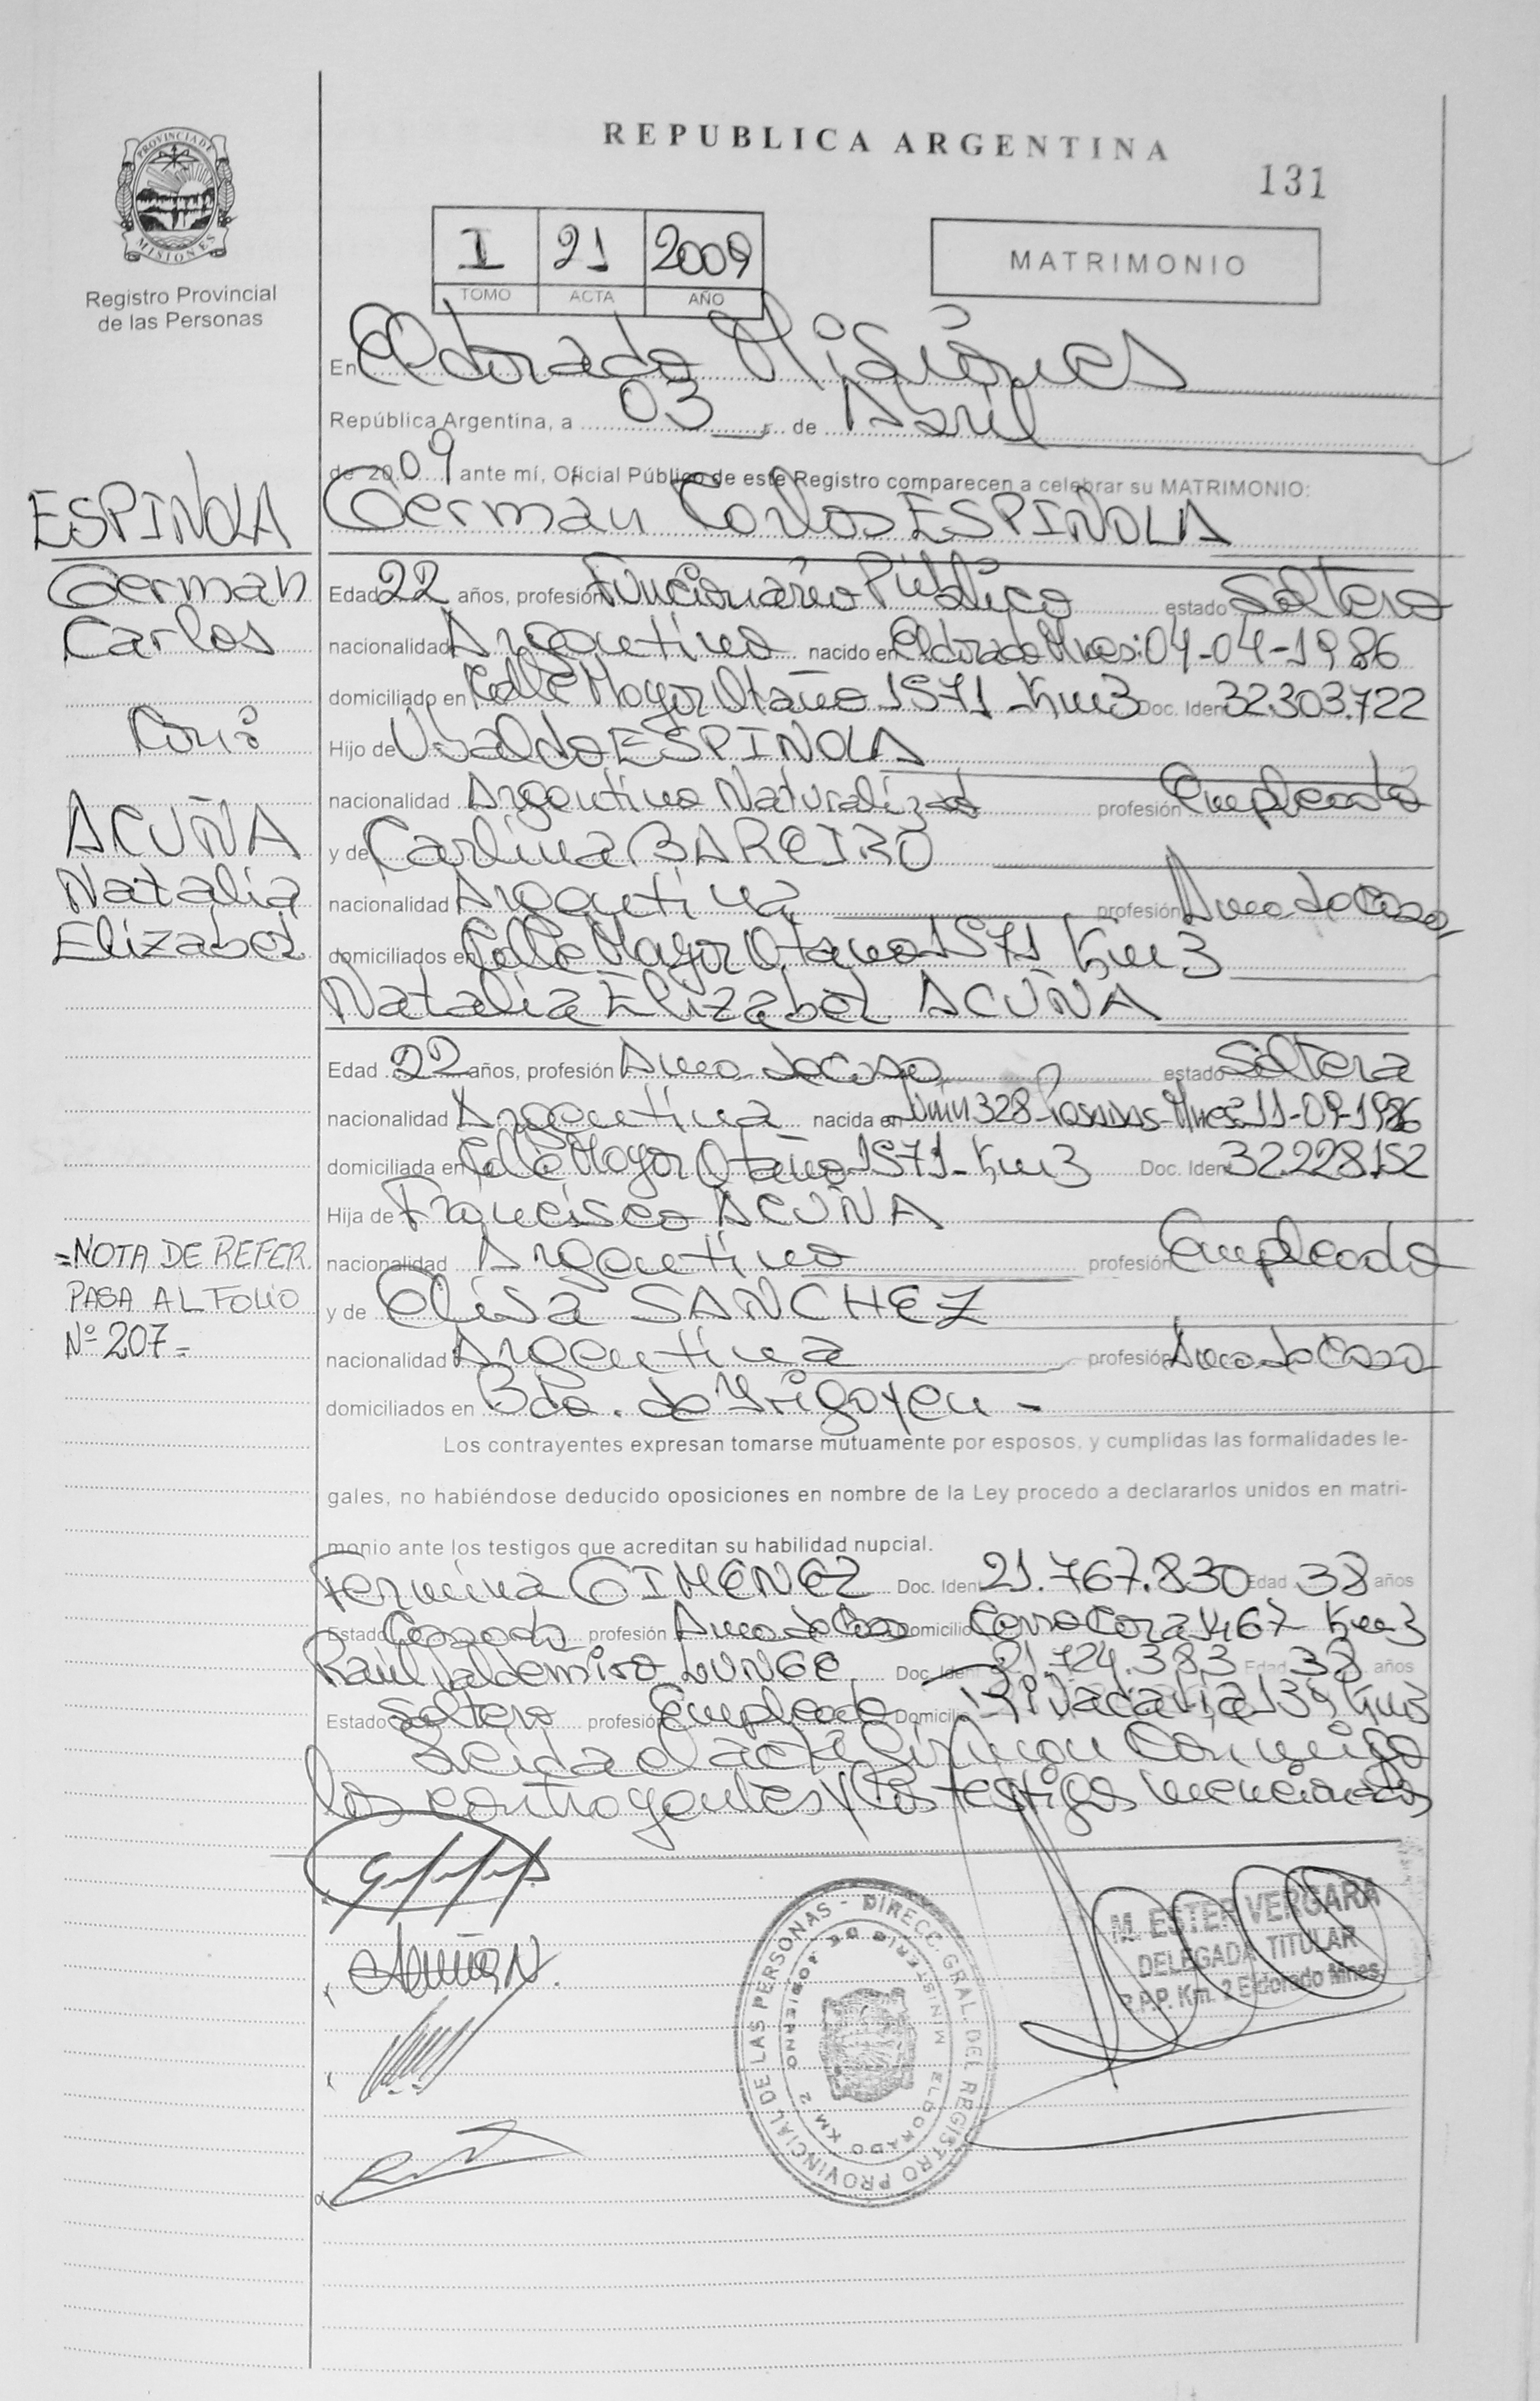 REPUBLICA ARGENTINA
131
PROVINCIA DE MISIONES
Registro Provincial
de las Personas
I 21 2009
TOMO ACTA AÑO
MATRIMONIO
En Eldorado Misiones
República Argentina, a 03 de Abril
de 2009 ante mí, Oficial Público de este Registro comparecen a celebrar su MATRIMONIO:
German Carlos ESPIÑOLA
Edad 22 años, profesión Funcionario Público estado Soltero
nacionalidad Argentino nacido en Eldorado Mnes: 04-04-1986
domiciliado en Calle Mayor Otaño 1571 - Km 3 Doc. Iden 32.303.722
Hijo de Ubaldo ESPINOLA
nacionalidad Argentino Naturalizado profesión Empleado
y de Carlina BAREIRO
nacionalidad Argentina profesión Ama de Casa
domiciliados en Calle Mayor Otaño 1571 Km 3
Natalia Elizabet ACUÑA
Edad 22 años, profesión Ama de Casa estado Soltera
nacionalidad Argentina nacida en 328 Posadas-Mnes 11-09-1986
domiciliada en Calle Mayor Otaño 1571 - Km 3 Doc. Ident 32.228.152
Hija de Francisco ACUÑA
nacionalidad Argentino profesión Empleado
y de Elisa SANCHEZ
nacionalidad Argentina profesión Ama de Casa
domiciliados en Bdo. de Yrigoyen -
Los contrayentes expresan tomarse mutuamente por esposos, y cumplidas las formalidades le-
gales, no habiéndose deducido oposiciones en nombre de la Ley procedo a declararlos unidos en matri-
monio ante los testigos que acreditan su habilidad nupcial.
Fermina GIMENEZ Doc. Iden 21.767.830 Edad 38 años
Estado Casada profesión Ama de Casa Domicilio Cerro Cora 1467 Km 3
Raul Valdemiro LUNGE Doc. Ident 21.724.383 Edad 38 años
Estado Soltero profesión Empleado Domicilio Rivadavia 139 Km 3
Leida el acta firman conmigo
los contrayentes y los testigos mencionados
ESPINOLA
German
Carlos
Con:
ACUÑA
Natalia
Elizabet
=NOTA DE REFER
PASA AL FOLIO
Nº 207=
Acuña N.
DIRECC. GRAL. DEL REGISTRO PROVINCIAL DE LAS PERSONAS -
MINISTERIO DE GOBIERNO
ELDORADO KM 2
M. ESTER VERGARA
DELEGADA TITULAR
R.P.P. Km. 2 Eldorado Mnes.